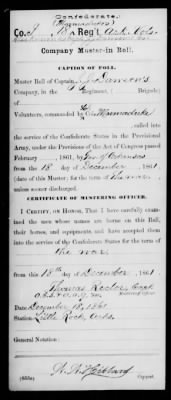 Confederate.
(Marmaduke's)
Co. J, 18 Reg't Ark. Vols.
Company Muster-in Roll.
CAPTION OF ROLL.
Muster Roll of Captain
Company, in the Regiment, ( Brigade)
of
Volunteers, commanded by Col. Marmaduke
called into
the service of the Confederate States in the Provisional
Army, under the provisions of the Act of Congress passed
February , 1861, by Gov. of Arkansas
from the 18th day of December, 1861
(date of this Muster) for the term of the war,
unless sooner discharged.
CERTIFICATE OF MUSTERING OFFICER.
I CERTIFY, ON HONOR, That I have carefully examined
the men whose names are borne on this Roll,
their horses, and equipments, and have accepted them
into the service of the Confederate States for the term of
the war
from this 18th day of December, 1861.
Thomas Rector, Capt
Mustering Officer.
Date: December 18, 1861
Station: Little Rock, Arks.
General Notation:
Copyist.